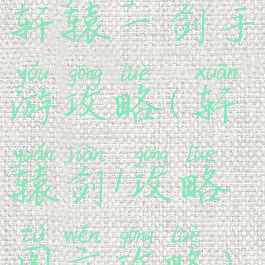 轩辕一剑手
yóu gōng lüè xuān
游攻略(轩
yuán jiàn gōng lüè
辕剑1攻略
tú wén gōng lüè
图文攻略)